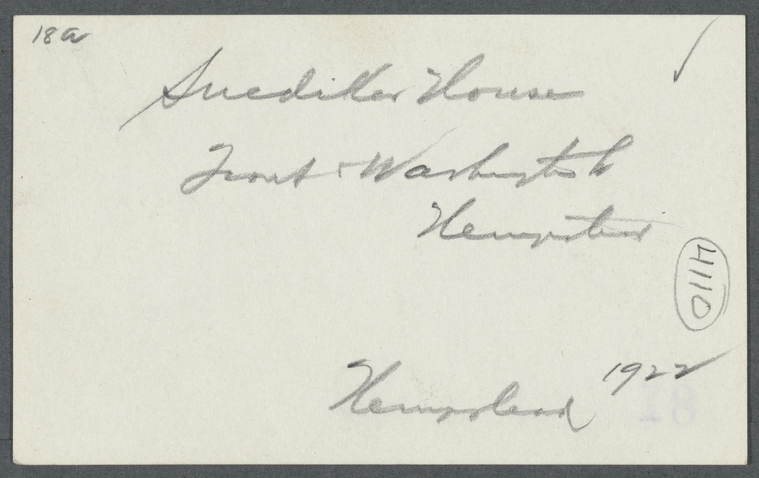 18a
Snediker House
Front & Washington St
Hempstead
4110
1922
Hempstead
18